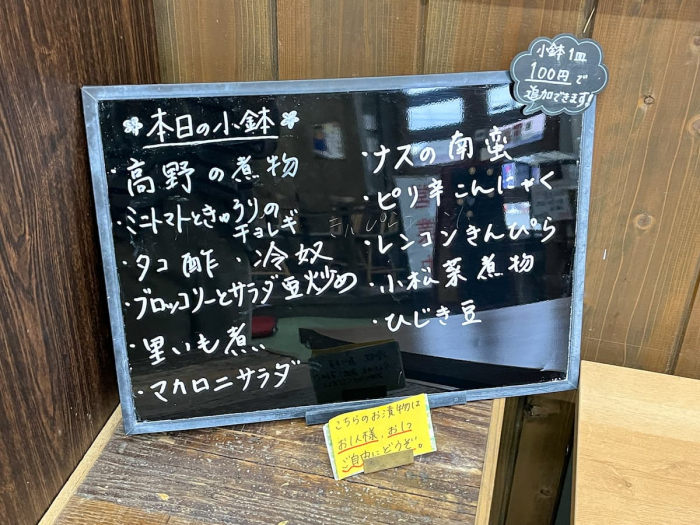 本日の小鉢
・高野の煮物
・ミニトマトときゅうりの
チョレギ
・タコ酢・冷奴
・ブロッコリーとサラダ豆炒め
・里いも煮
・マカロニサラダ
・ナスの南蛮
・ピリ辛こんにゃく
・レンコンきんぴら
・小松菜煮物
・ひじき豆
小鉢1皿
100円で
追加できます!
こちらのお漬物は
お1人様、お1つ
ご自由にどうぞ。